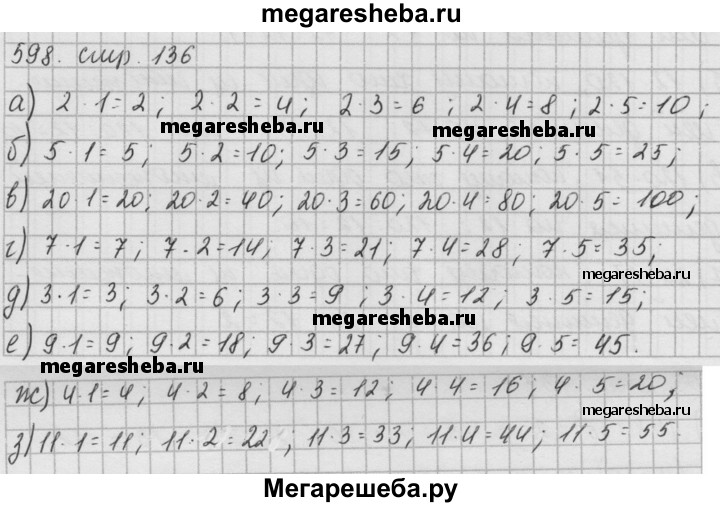 megaresheba.ru
598. стр. 136
а) 2 · 1 = 2 ; 2 · 2 = 4 ; 2 · 3 = 6 ; 2 · 4 = 8 ; 2 · 5 = 10 ;
megaresheba.ru megaresheba.ru
б) 5 · 1 = 5 ; 5 · 2 = 10 ; 5 · 3 = 15 ; 5 · 4 = 20 ; 5 · 5 = 25 ;
в) 20 · 1 = 20 ; 20 · 2 = 40 ; 20 · 3 = 60 ; 20 · 4 = 80 ; 20 · 5 = 100 ;
г) 7 · 1 = 7 ; 7 · 2 = 14 ; 7 · 3 = 21 ; 7 · 4 = 28 ; 7 · 5 = 35 ;
megaresheba.ru
д) 3 · 1 = 3 ; 3 · 2 = 6 ; 3 · 3 = 9 ; 3 · 4 = 12 ; 3 · 5 = 15 ;
megaresheba.ru
е) 9 · 1 = 9 ; 9 · 2 = 18 ; 9 · 3 = 27 ; 9 · 4 = 36 ; 9 · 5 = 45 .
megaresheba.ru
ж) 4 · 1 = 4 ; 4 · 2 = 8 ; 4 · 3 = 12 ; 4 · 4 = 16 ; 4 · 5 = 20 ;
megaresheba.ru
з) 11 · 1 = 11 ; 11 · 2 = 22 ; 11 · 3 = 33 ; 11 · 4 = 44 ; 11 · 5 = 55 .
Мегарешеба.ру